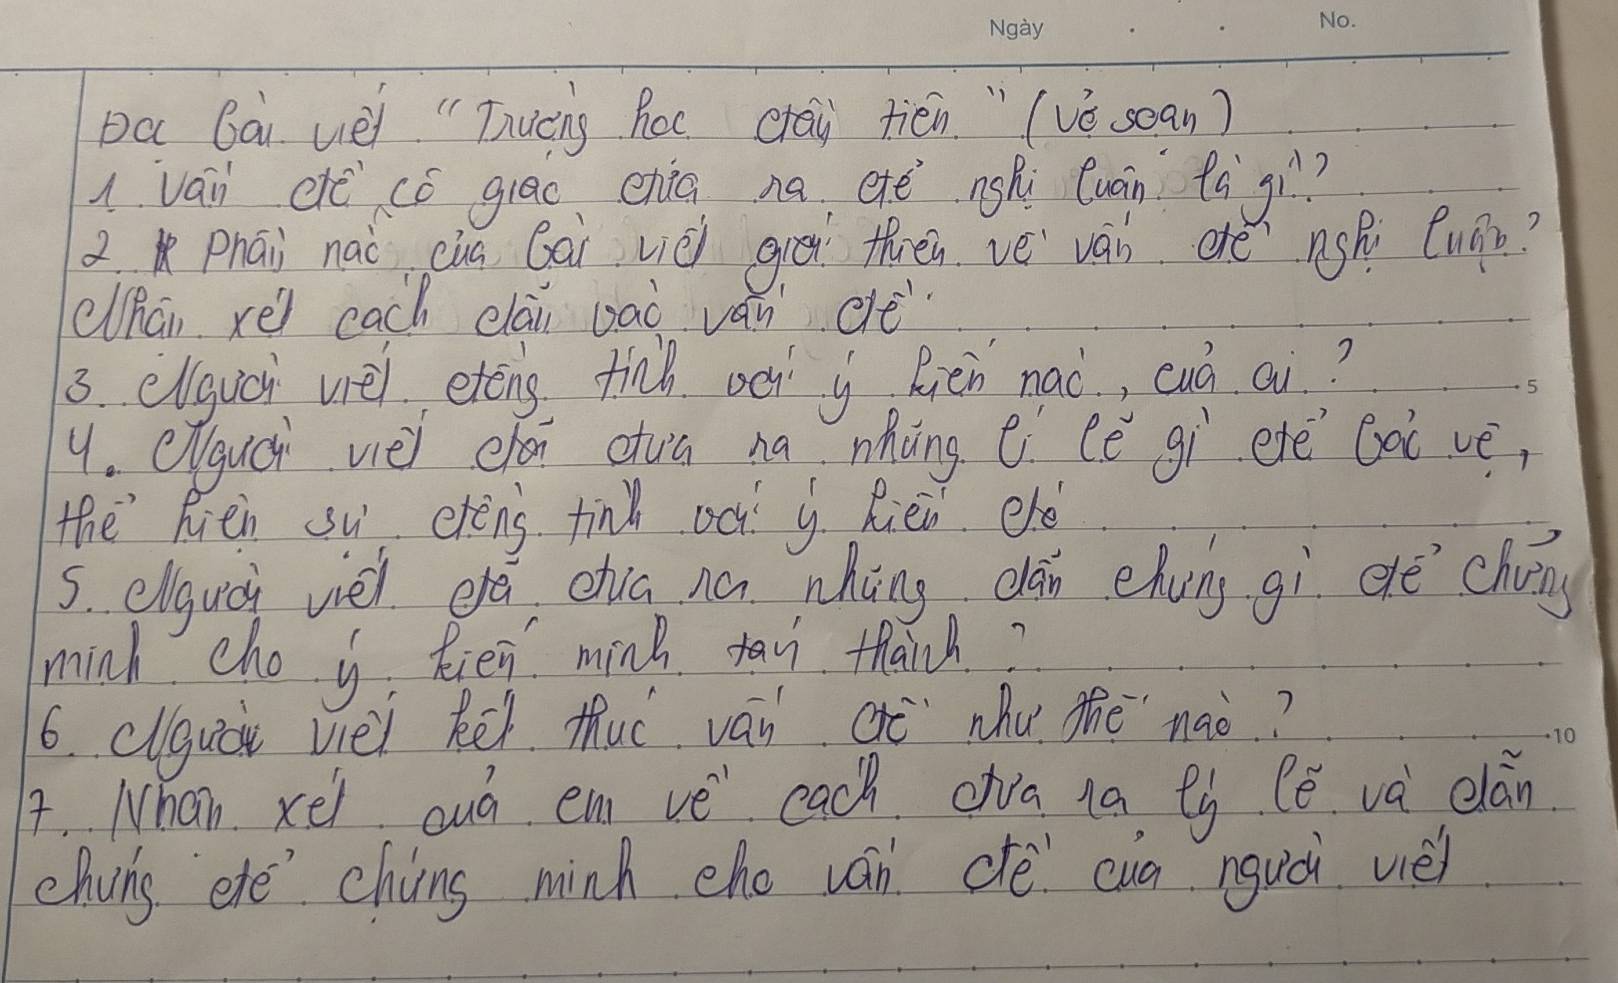 Ngày No.
Đọc bài viết "Trường học đầu tiên" (vở soạn)
1. Vấn đề cô giáo đưa ra để nghị luận là gì?
2. Phần nào của bài viết giới thiệu về vấn đề nghị luận?
Nhận xét cách dẫn vào vấn đề
3. Người viết đồng tình với ý kiến nào, của ai?
5
4. Người viết đã đưa ra những lí lẽ gì để bảo vệ,
thể hiện sự đồng tình với ý kiến đó
5. Người viết đã đưa ra những dẫn chứng gì để chứng
minh cho ý kiến mình tán thành?
6. Người viết kết thúc vấn đề như thế nào?
10
7. Nhận xét của em về cách đưa ra lý lẽ và dẫn
chứng để chứng minh cho vấn đề của người viết